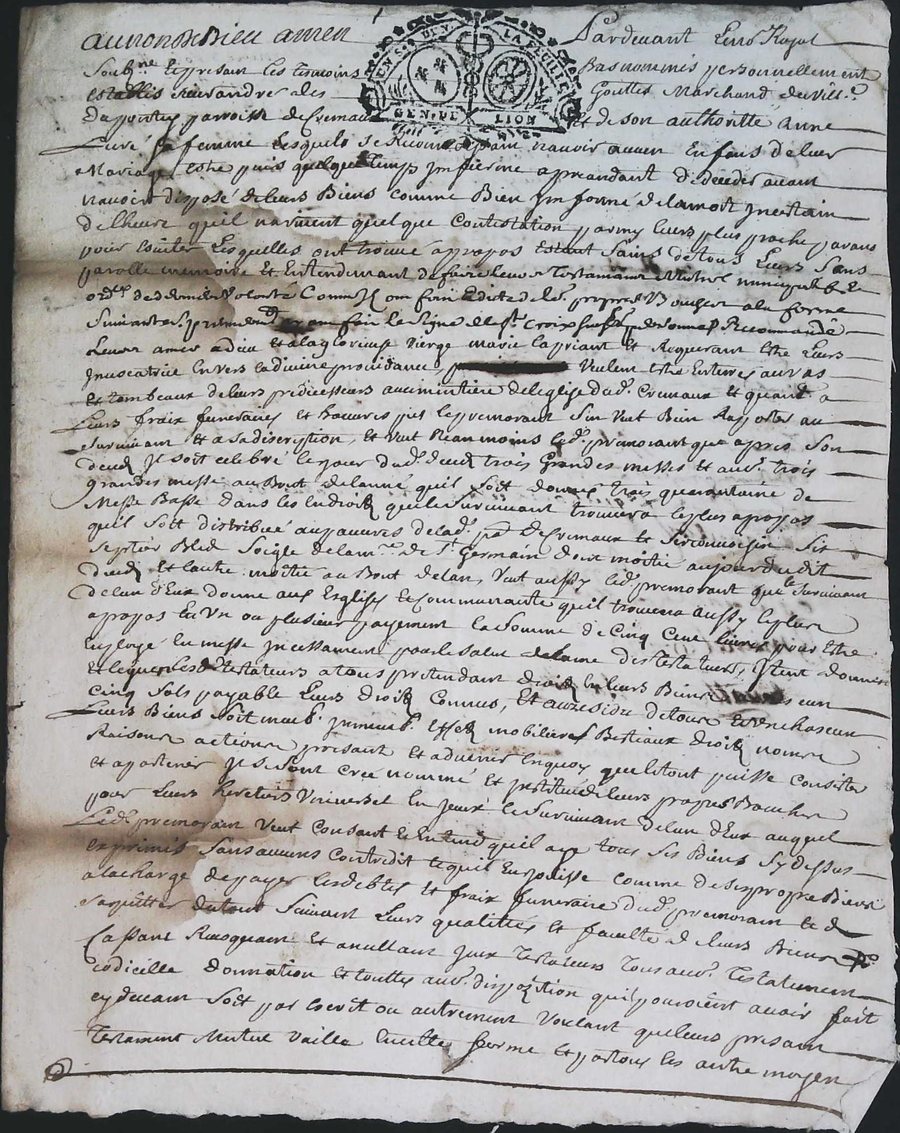 au nom de Dieu amen Pardevant Le no.re Royal
Soub.ne Et presan les temoins bas nommés personnellement
establis sieur andre des Gouttes Marchand du vill.e
UN SOL DEN. LA FEUILLE
GEN. DE LION
parroisse de Cremau Et de son authoritté anne
sa femme Lesquels se n'avoir aucun Enfans de leur
Mariage puis quelque temps apreandant de deceder avant
n'avoir disposé de leurs Biens comme Bien de la mort Incertain
de lheure quil quelque Contestation parmy leurs plus proche parans
pour Eviter Lesquelles ont trouvé a propos Estant Sains de tous Leurs Sans
parolle memoire Et Entendemant de faire Leur Testamant Mutuel nuncupatif Et
ord.re de derniere volonté Comme Il ont fait a la forme
Suivante le Signe de la S.te Croix sur leurs personnes Recommandé
Leurs ames a dieu et a la glorieuse vierge marie la priant et Requerant Estre Leurs
Invocatrice Envers la divine providance, Veulent Estre Enterrés aux vas
Et tombeaux de leurs predecesseurs au cimentiere de leglise du d. Cremaux Et quand a
Leurs fraix funeraires Et le premorant Sen veut Bien Rapporter au
Survivant Et a sa discrition, Et veut neanmoins le d. premorant que apres Son
deced Il soit celebré le jour du d. deced trois Grandes messes Et au.t trois
grandes messe au Bout de lanné quil soit donné trois quarantaine de
Messe Basse dans les Endroit que le Survivant trouvera le plus a propos
quil soit distribué aux pauvres de la d. p.sse de Cremaux Et Sirconvoisin Six
Septier Bled Soigle de la m. de S.t Germain dont moitié au jour du dit
deced Et lautre moitié au Bout de lan, Veut aussy le d. premorant que le Survivant
de lun d'Eux donne aux Esglises Et Communauté quil trouvera aussy le plus
a propos En Un ou plusieur payement la Somme de Cinq Cent livres pour Estre
Employé En messe Incessament pour le Salut de lame des testateurs, Item donnent
Et leguent Les d. testateurs a tous pretendant droit En leurs Biens
Cinq Sols payable Leurs droits Connus, Et au residu de tous Et un chascun
Leurs Biens soit meub. Immeub. Effets mobilieres Bestiaux droits noms
Raisons actions presant Et advenir En quoy que le tout puisse Consister
Et apartenir Ils Sont Cree nommé et Institué de leurs propres Bouches
pour Leurs heretiers Universel En Jceux le Survivant de lun d'Eux auquel
Le d. premorant veut Consant Et Entend quil aye tous Ses Biens Sy dessus
Exprimés Sans aucuns Contredit Et quil En jouisse comme de ses propre Biens
a la charge de payer les debtes Et fraix funeraire du d. premorant Et de
saquitter du tout Suivant Leurs qualittés et faculté de leurs Biens
Cassant Revoquant Et anullant Jceux Testateurs Tous au.s Testament
codicille donnation et touttes au.s disposition quils pourroient avoir fait
cy devant Soit par Escrit ou autrement Voulant que leurs presant
Testament Mutuel Vaille Et par tous les autre moyen